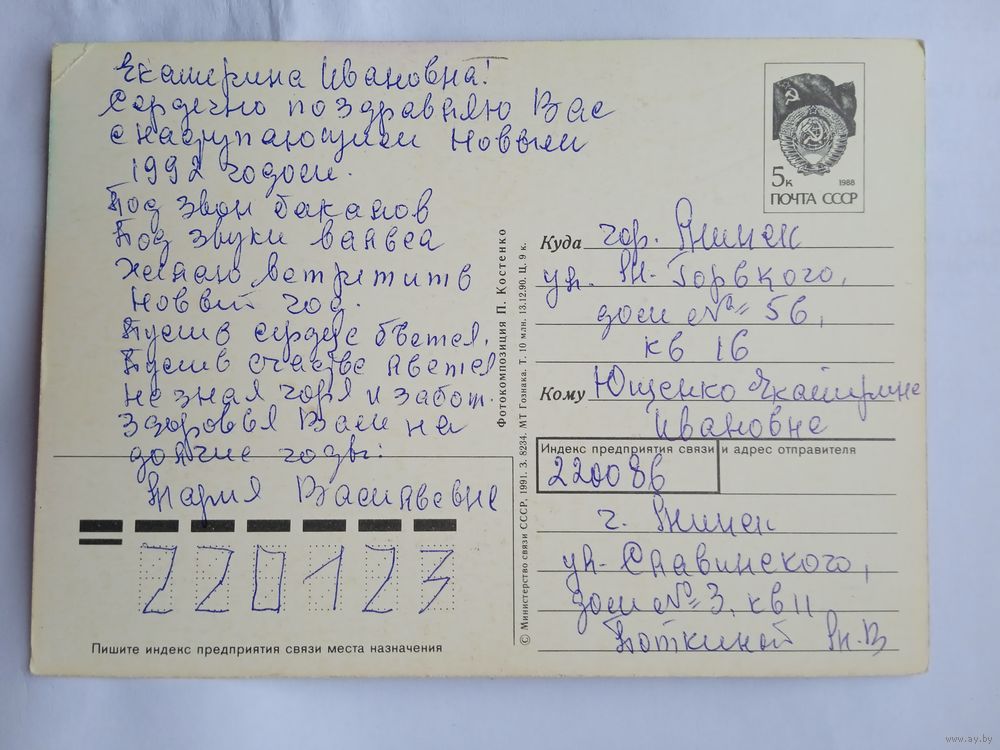 Екатерина Ивановна!
Сердечно поздравляю Вас
с наступающим Новым
1992 годом.
Под звон бакалов
Под звуки вальса
Желаю встретить
Новый год.
Пусть сердце бьется,
Пусть счастье льется
Не зная горя и забот.
Здоровья Вам на
долгие годы:
Мария Васильевне
220123
Пишите индекс предприятия связи места назначения
© Министерство связи СССР, 1991. З. 8234. МТ Гознака. Т. 10 млн. 13.12.90. Ц. 9 к.
Фотокомпозиция П. Костенко
5к 1988
ПОЧТА СССР
Куда гор. Минск
ул. М. Горького,
дом № 56,
кв 16
Кому Ющенко Екатерине
Ивановне
Индекс предприятия связи и адрес отправителя
220086
г. Минск
ул. Славинского,
дом № 3, кв 11
Боткиной М. В
www.ay.by